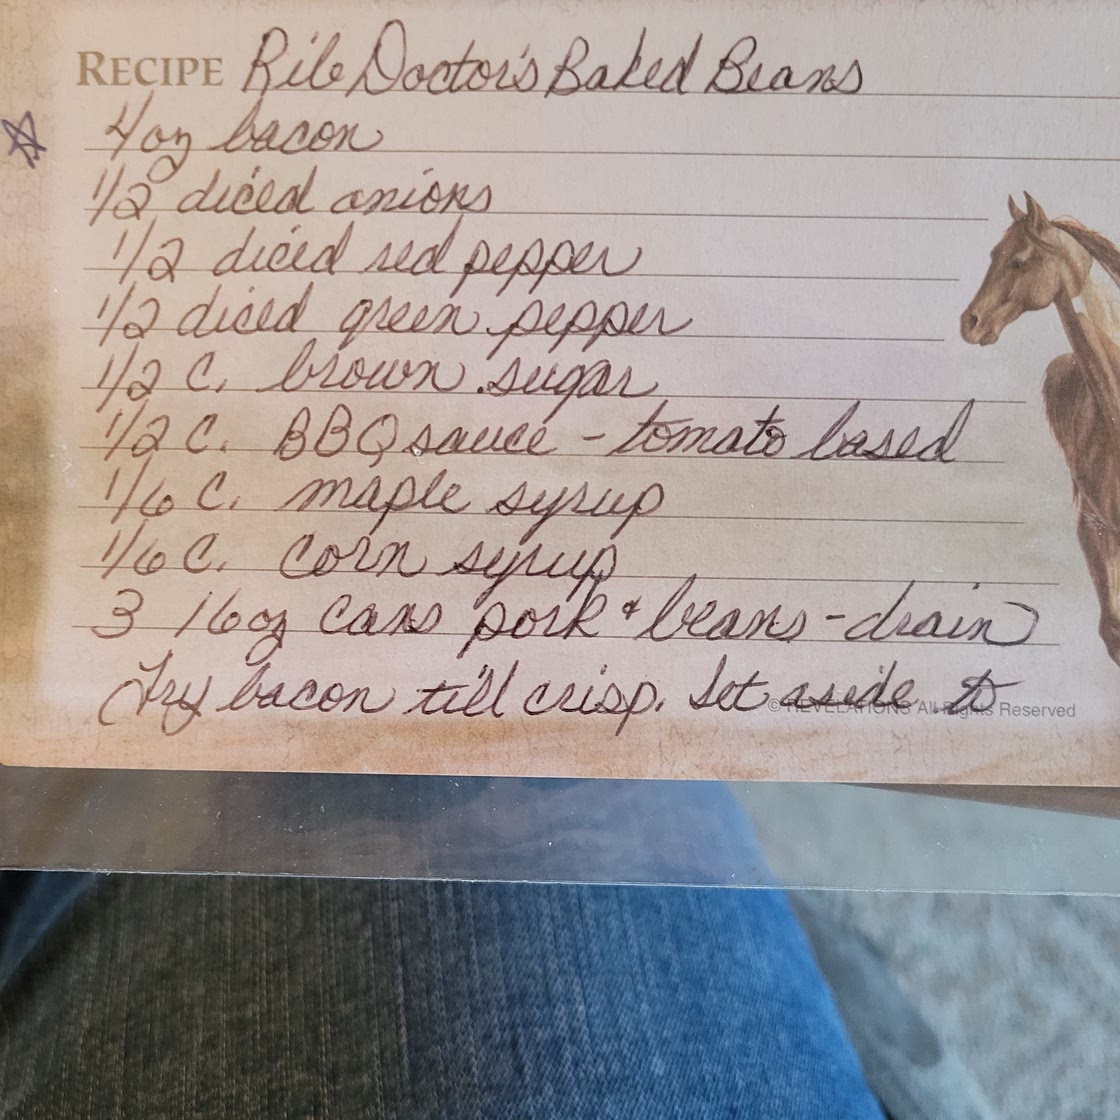 RECIPE Rib Doctor's Baked Beans
4 oz bacon
1/2 diced onions
1/2 diced red pepper
1/2 diced green pepper
1/2 C. brown sugar
1/2 C. BBQ sauce - tomato based
1/6 C. maple syrup
1/6 C. corn syrup
3 16 oz cans pork & beans - drain
Fry bacon till crisp. Set aside.
© REVELATIONS All Rights Reserved